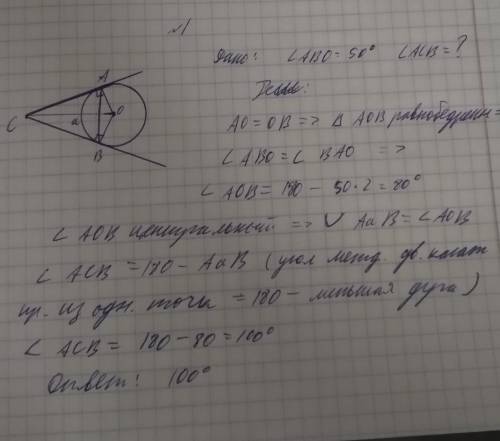 √1
Дано: ∠ABO=50° ∠ACB=?
A
C
a
O
B
AO=OB => Δ AOB равнобедрен =>
∠ABO=∠ BAO =>
∠AOB=180-50·2=80°
∠ AOB центральный => ∪ AaB=∠AOB
∠ ACB =180-AaB (угол межд. дв. касат
пр. из одн. точки =180- меньшая дуга)
∠ ACB= 180-80=100°
Ответ: 100°